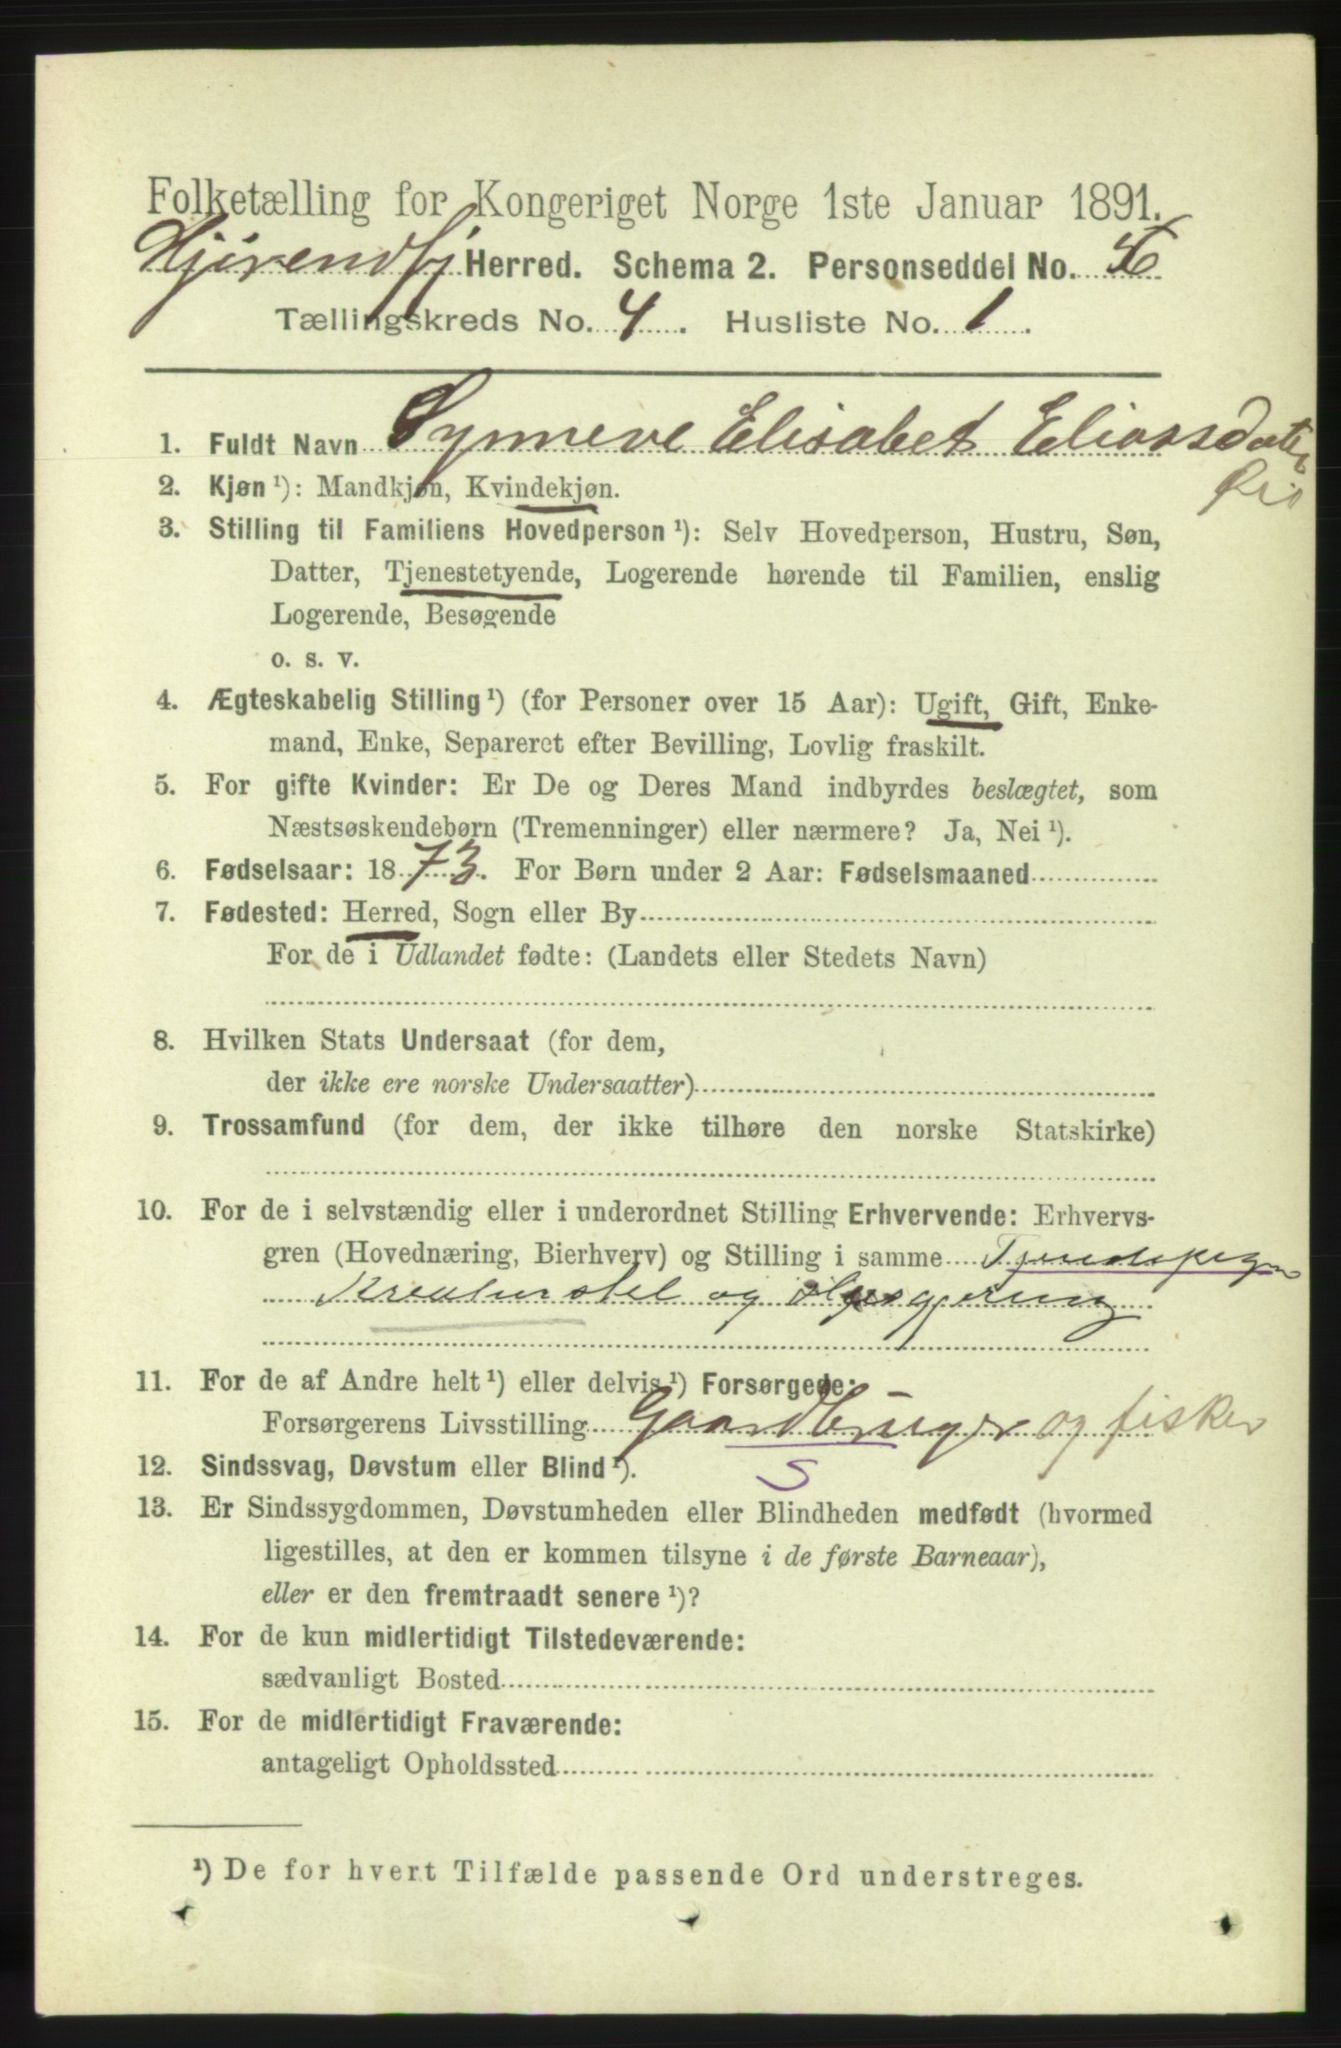 Folketælling for Kongeriget Norge 1ste Januar 1891.
Hjørendfj Herred. Schema 2. Personseddel No.
Tællingskreds No. 4. Husliste No. 1.
1. Fuldt Navn Synneve Elisabet Eliasdatter
2. Kjøn ¹): Mandkjøn, Kvindekjøn.
3. Stilling til Familiens Hovedperson ¹): Selv Hovedperson, Hustru, Søn,
Datter, Tjenestetyende, Logerende hørende til Familien, enslig
Logerende, Besøgende
o. s. v.
4. Ægteskabelig Stilling ¹) (for Personer over 15 Aar): Ugift, Gift, Enke-
mand, Enke, Separeret efter Bevilling, Lovlig fraskilt.
5. For gifte Kvinder: Er De og Deres Mand indbyrdes beslægtet, som
Næstsøskendebørn (Tremenninger) eller nærmere? Ja, Nei ¹).
6. Fødselsaar: 1873. For Børn under 2 Aar: Fødselsmaaned
7. Fødested: Herred, Sogn eller By
For de i Udlandet fødte: (Landets eller Stedets Navn)
8. Hvilken Stats Undersaat (for dem,
der ikke ere norske Undersaatter)
9. Trossamfund (for dem, der ikke tilhøre den norske Statskirke)
10. For de i selvstændig eller i underordnet Stilling Erhvervende: Erhvervs-
gren (Hovednæring, Bierhverv) og Stilling i samme Tjenestepige
Kreaturstel og
11. For de af Andre helt ¹) eller delvis ¹) Forsørgede:
Forsørgerens Livsstilling Gaardbruger og fisker
12. Sindssvag, Døvstum eller Blind ¹). S
13. Er Sindssygdommen, Døvstumheden eller Blindheden medfødt (hvormed
ligestilles, at den er kommen tilsyne i de første Barneaar),
eller er den fremtraadt senere ¹)?
14. For de kun midlertidigt Tilstedeværende:
sædvanligt Bosted
15. For de midlertidigt Fraværende:
antageligt Opholdssted
¹) De for hvert Tilfælde passende Ord understreges.